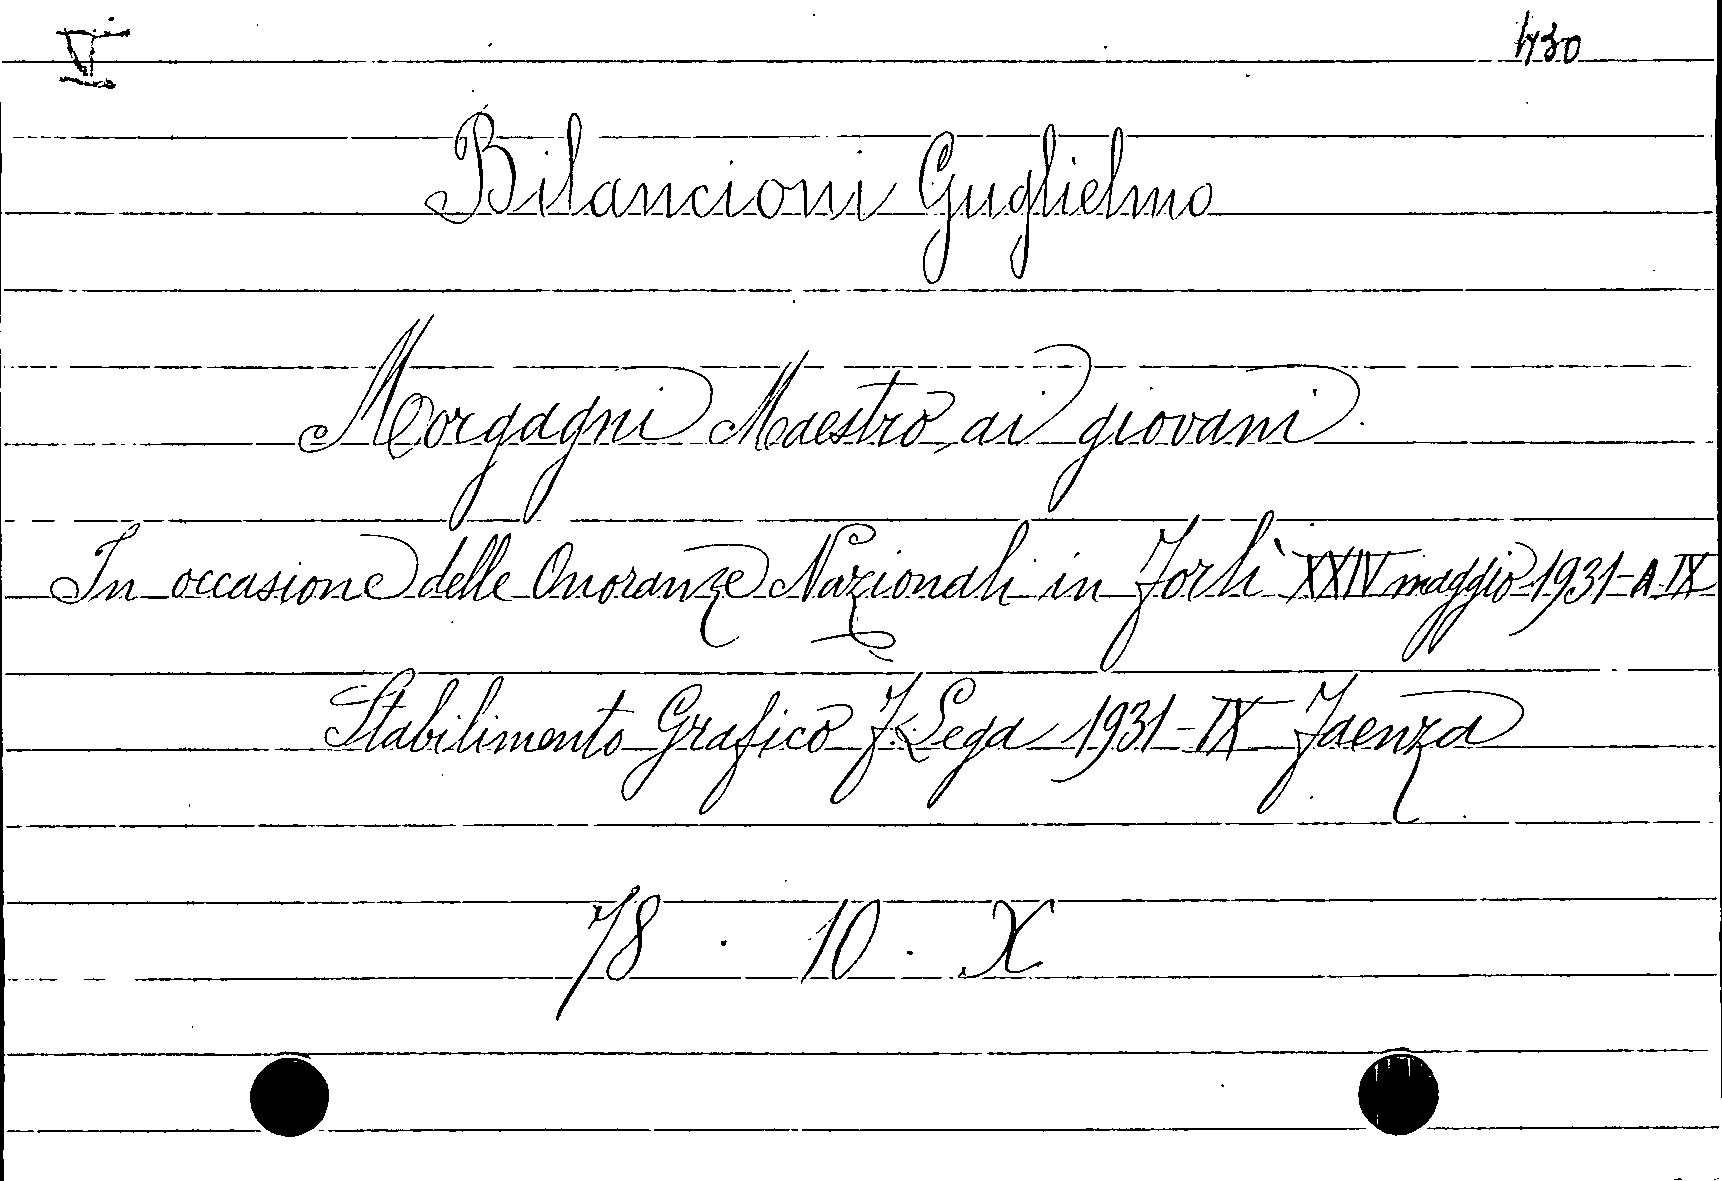 V 430
Bilancioni Guglielmo
Morgagni Maestro ai giovani.
In occasione delle Onoranze Nazionali in Forlì XXIV maggio 1931-A.IX
Stabilimento Grafico F. Lega 1931-IX Faenza
78 · 10 · X